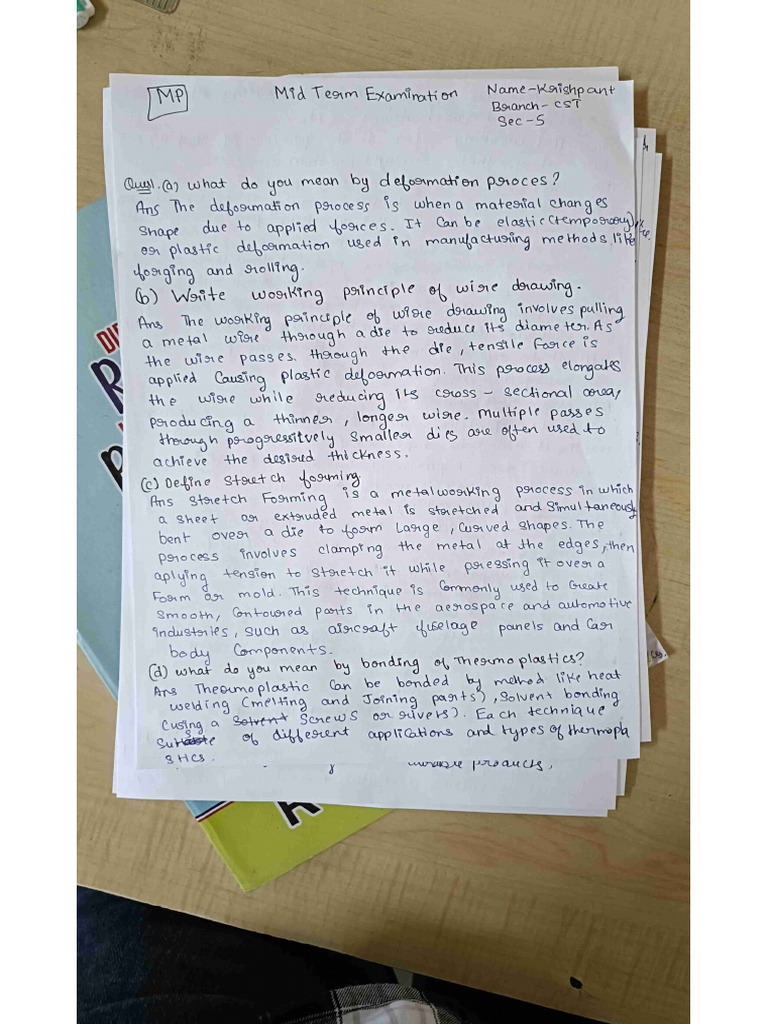 MP
Mid Term Examination
Name-Krishpant
Branch-CST
Sec-5
Ques1. (a) What do you mean by deformation proces?
Ans The deformation process is when a material changes
shape due to applied forces. It can be elastic (temporary)
or plastic deformation used in manufacturing methods like
forging and rolling.
(b) Write working principle of wire drawing.
Ans The working principle of wire drawing involves pulling
a metal wire through a die to reduce its diameter. As
the wire passes through the die, tensile force is
applied causing plastic deformation. This process elongates
the wire while reducing its cross-sectional area,
producing a thinner, longer wire. Multiple passes
through progressitvely smaller dies are often used to
achieve the desired thickness.
(c) Define stretch forming
Ans Stretch Forming is a metalworking process in which
a sheet or extruded metal is stretched and simultaneously
bent over a die to form large, curved shapes. The
process involves clamping the metal at the edges, then
aplying tension to stretch it while pressing it over a
form or mold. This technique is commonly used to create
smooth, contoured parts in the aerospace and automotive
industries, such as aircraft fuselage panels and car
body components.
(d) What do you mean by bonding of Thermoplastics?
Ans Theormoplastic can be bonded by method like heat
welding (melting and Joining parts), solvent bonding
(using a Solvent Screws or rivers). Each technique
of different applications and types of thermopla
stics.
products,